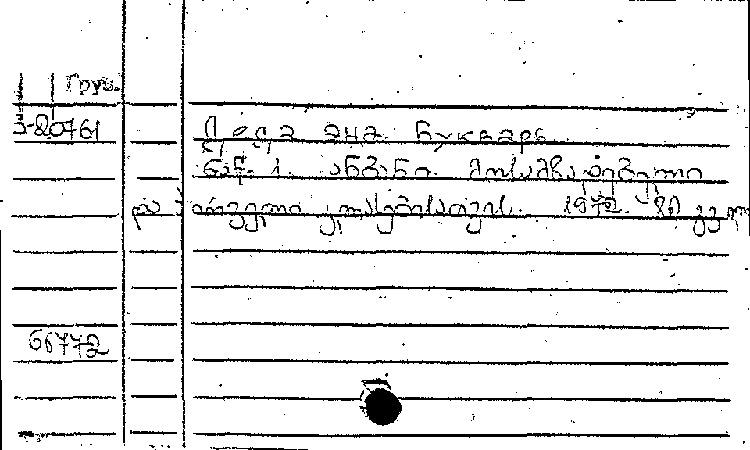 Груз.
დედა ენა. Букварь.
ნაწ. 1. ანბანი. მოსამზადებელი
და პირველი კლასებისათვის. 1972. 80 გვ.
66772